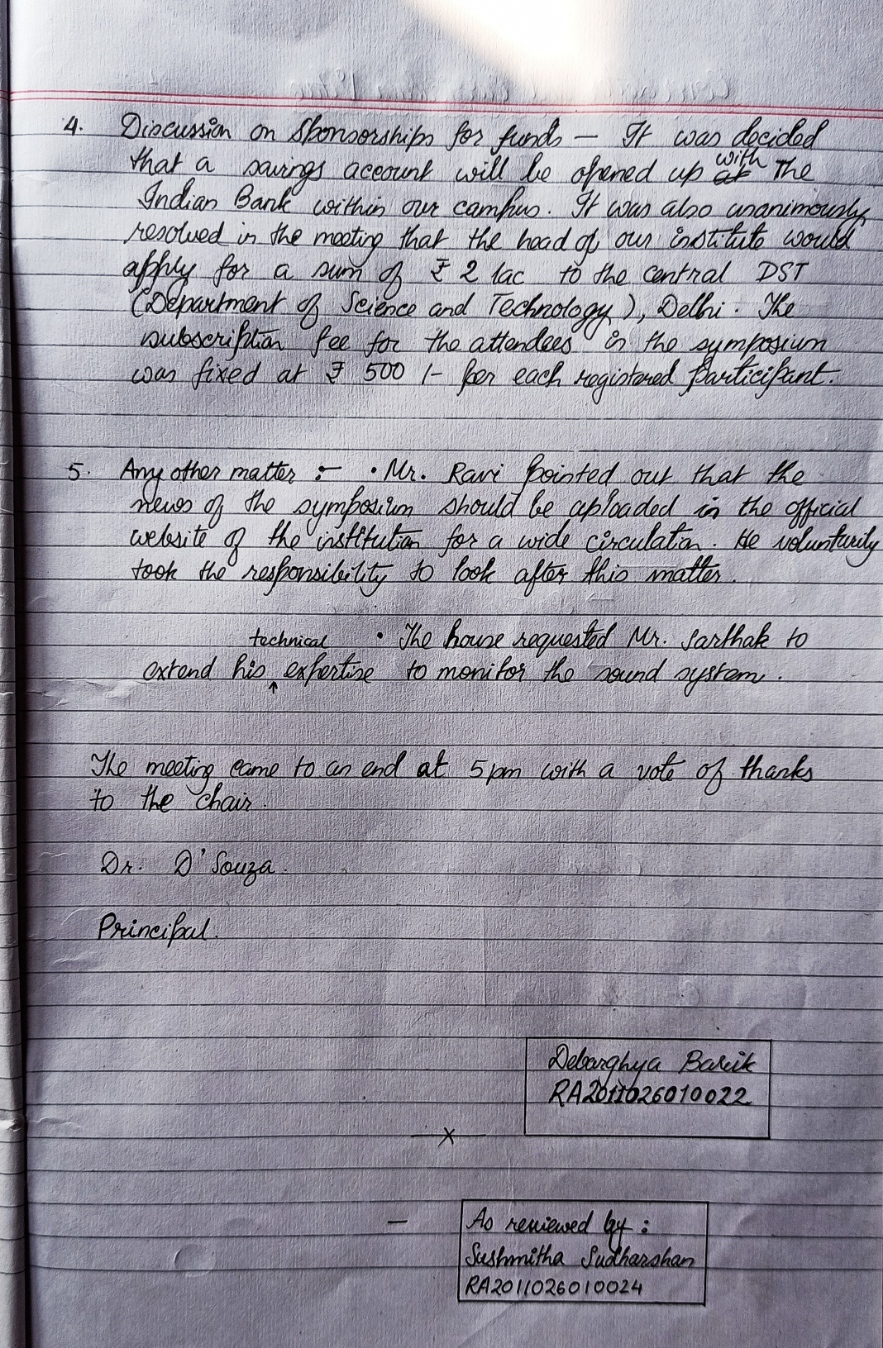 4. Discussion on Sponsorships for funds – It was decided
that a savings account will be opened up with the
Indian Bank within our campus. It was also unanimously
resolved in the meeting that the head of our institute would
apply for a sum of ₹ 2 lac to the central DST
(Department of Science and Technology), Delhi. The
subscription fee for the attendees in the symposium
was fixed at ₹ 500 /- per each registered participant.
5. Any other matter :- • Mr. Ravi pointed out that the
news of the symposium should be uploaded in the official
website of the institution for a wide circulation. He voluntarily
took the responsibility to look after this matter.
• The house requested Mr. Sarthak to
extend his technical expertise to monitor the sound system.
The meeting came to an end at 5pm with a vote of thanks
to the chair.
Dr. D'Souza.
Principal.
Debarghya Barik
RA2011026010022
—x—
– As reviewed by :
Sushmitha Sudharshan
RA2011026010024